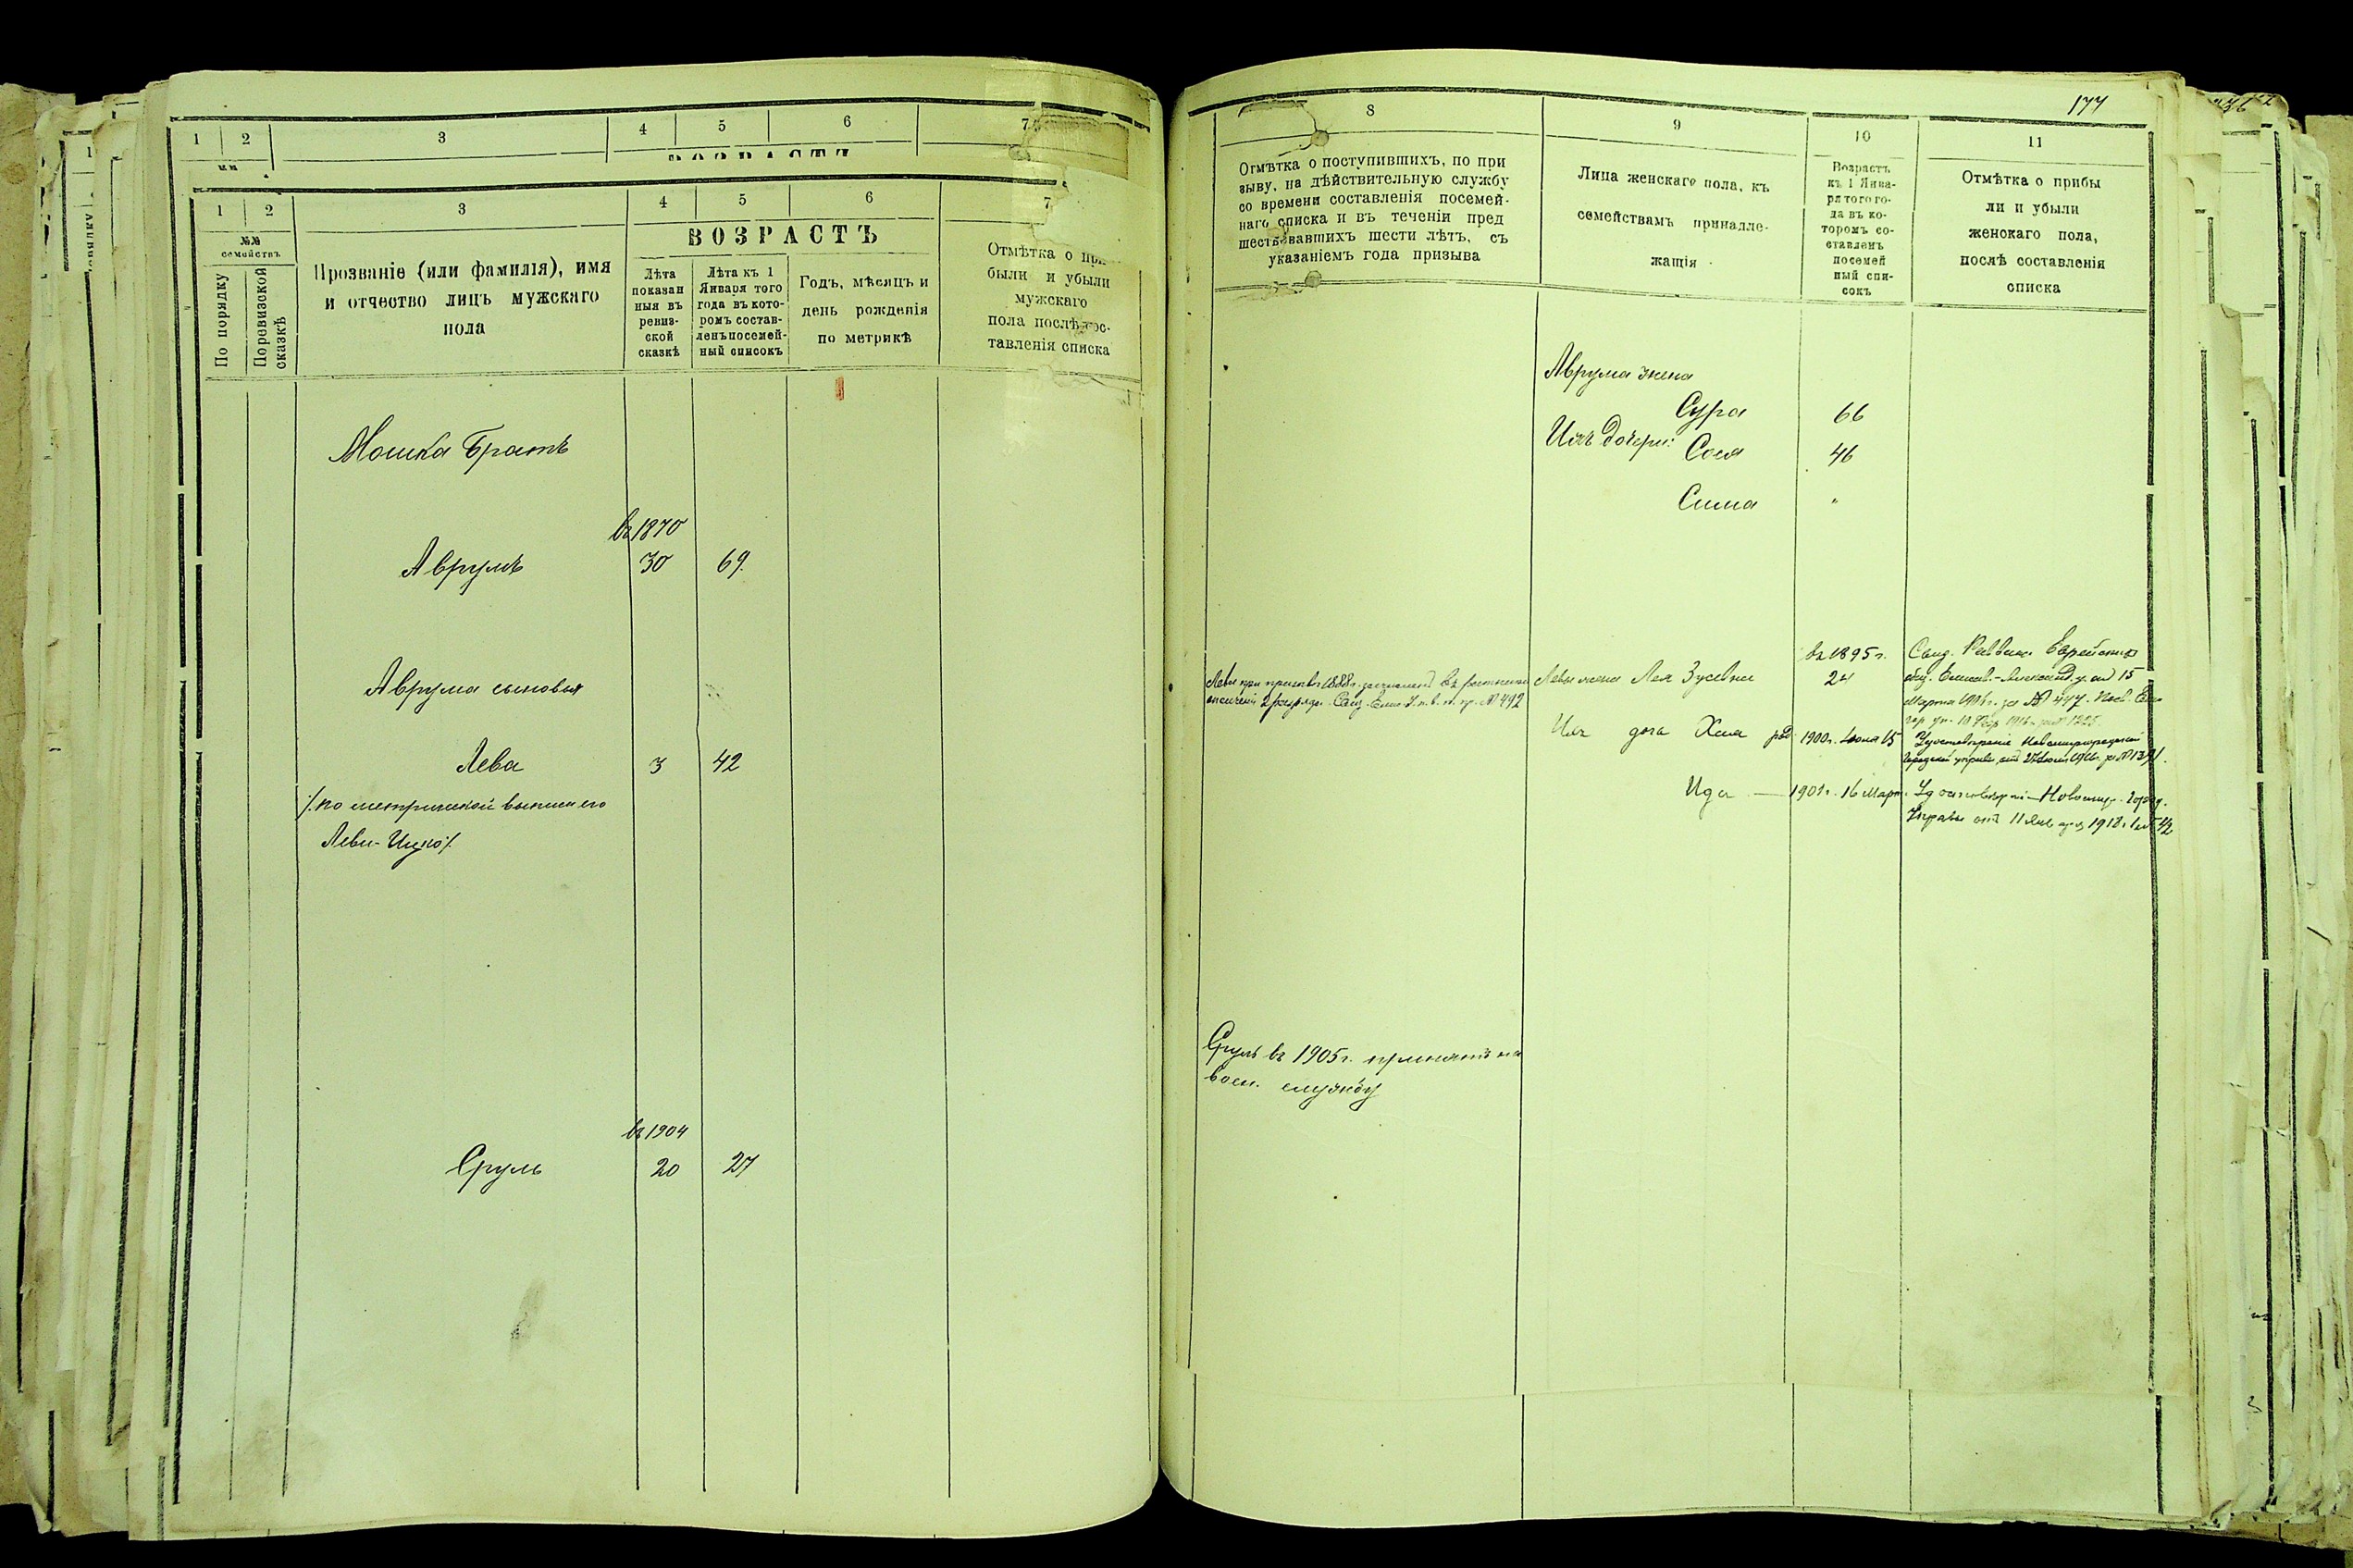 1 2 3 4 5 6 7
ВОЗРАСТЪ
1 2 3 4 5 6 7
№№ семействъ
По порядку
По ревизской сказкѣ
Прозваніе (или фамилія), имя
и отчество лицъ мужскаго
пола
ВОЗРАСТЪ
Лѣта
показан
ныя въ
ревиз-
ской
сказкѣ
Лѣта къ 1
Января того
года въ кото-
ромъ состав-
ленъ посемей-
ный списокъ
Годъ, мѣсяцъ и
день рожденія
по метрикѣ
Отмѣтка о при
были и убыли
мужскаго
пола послѣ сос-
тавленія списка
Мошка Братъ
въ 1870
Аврумъ 30 69.
Аврума сыновья
Лева 3 42
/по метрической выписи его
Леви-Ицко/
въ 1904
Сруль 20 27
177
8 9 10 11
Отмѣтка о поступившихъ, по при
зыву, на дѣйствительную службу
со времени составленія посемей-
наго списка и въ теченіи пред
шествовавшихъ шести лѣтъ, съ
указаніемъ года призыва
Лица женскаго пола, къ
семействамъ принадле-
жащія
Возрастъ
къ 1 Янва-
ря того го-
да въ ко-
торомъ со-
ставленъ
посемей
ный спи-
сокъ
Отмѣтка о прибы
ли и убыли
женскаго пола,
послѣ составленія
списка
Аврума жена
Сура 66
Ихъ дочери: Сося 46
Сима "
въ 1895 г.
Левы жена Лея Зусевна 24
Лева при призывѣ 1888 г. зачисленъ въ ратники
ополченія 2 разряда. Свид. Елис. У. п. в. п. пр. № 492
Свид. Раввина Еврейскаго
общ. Елисав.-Александ. у. отъ 15
Марта 1906 г. за № 447.
Ихъ дочь Хая род. 1900 г. Іюня 15
Удостовѣреніе Новомиргородской
Городской управы отъ
Ида — 1901 г. 16 Март.
Удостовѣреніе Новомир. Город.
Управы отъ 11 Янв
Сруль въ 1905 г. принятъ на
воен. службу